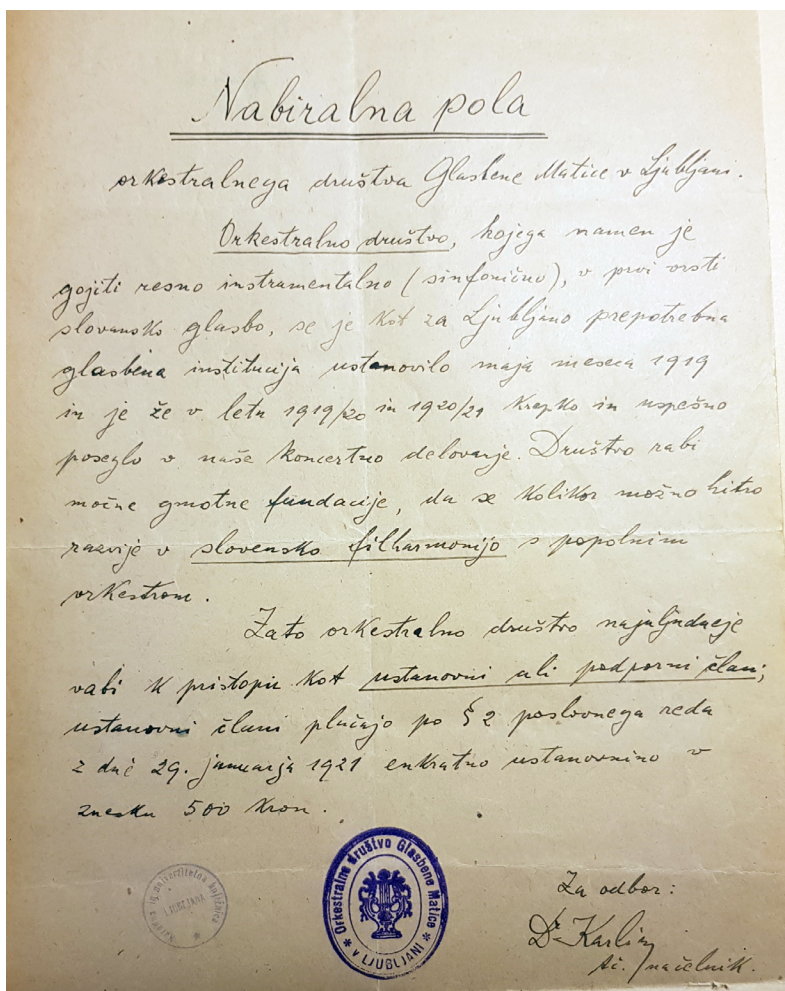 Nabiralna pola
orkestralnega društva Glasbene Matice v Ljubljani.
Orkestralno društvo, kojega namen je
gojiti resno instrumentalno (sinfonično), v prvi vrsti
slovansko glasbo, se je kot za Ljubljano prepotrebna
glasbena institucija ustanovilo maja meseca 1919
in je že v letu 1919/20 in 1920/21 krepko in uspešno
poseglo v naše koncertno delovanje. Društvo rabi
močne gmotne fundacije, da se kolikor možno hitro
razvije v slovensko filharmonijo s popolnim
orkestrom.
Zato orkestralno društvo najuljudneje
vabi k pristopu kot ustanovni ali podporni člani;
ustanovni člani plačajo po § 2 poslovnega reda
z dné 29. januarja 1921 enkratno ustanovnino v
znesku 500 kron.
Narodna in univerzitetna knjižnica
LJUBLJANA
Orkestralno društvo Glasbene Matice
V LJUBLJANI
Za odbor:
Dr Karlin
tč. načelnik.